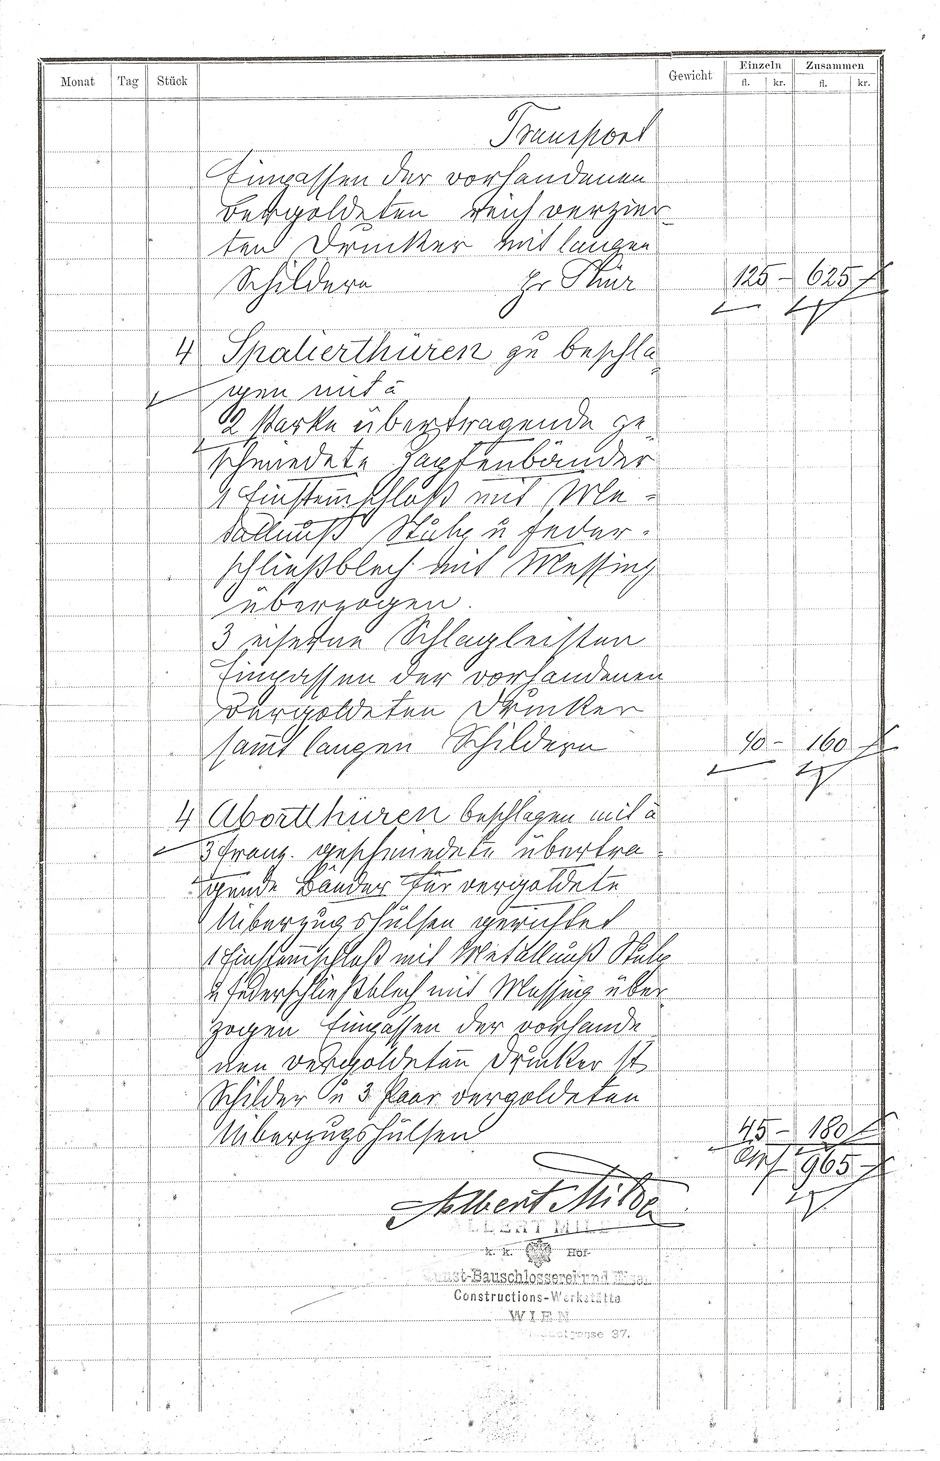 Monat Tag Stück Gewicht Einzeln Zusammen
fl. kr. fl. kr.
Transport
Einpassen der vorhandenen
vergoldeten reich verzier-
ten Drücker mit langen
Schildern pr Thür 125 - 625 -
4 Spalierthüren zu beschla-
gen mit à
2 starke übertragende ge-
schmiedete Zapfenbänder
1 Einstemschloß mit Me-
tallnuß Stulp u Feder-
schließblech mit Messing
überzogen.
3 eiserne Schlagleisten
Einpassen der vorhandenen
vergoldeten Drücker
samt langen Schildern 40 - 160 -
4 Abortthüren beschlagen mit à
3 franz. geschmiedete übertra-
gende Bänder für vergoldete
Uiberzugshülsen gerichtet
1 Einstemschloß mit Metallnuß Stulp
u Federschließblech mit Messing über
zogen Einpassen der vorhande
nen vergoldeten Drücker st
Schilder u 3 Paar vergoldeten
Uiberzugshülsen 45 - 180 -
965 -
Albert Milde
ALBERT MILDE
k. k. Hof-
Kunst-Bauschlosserei und Eisen
Constructions-Werkstätte
WIEN
37.